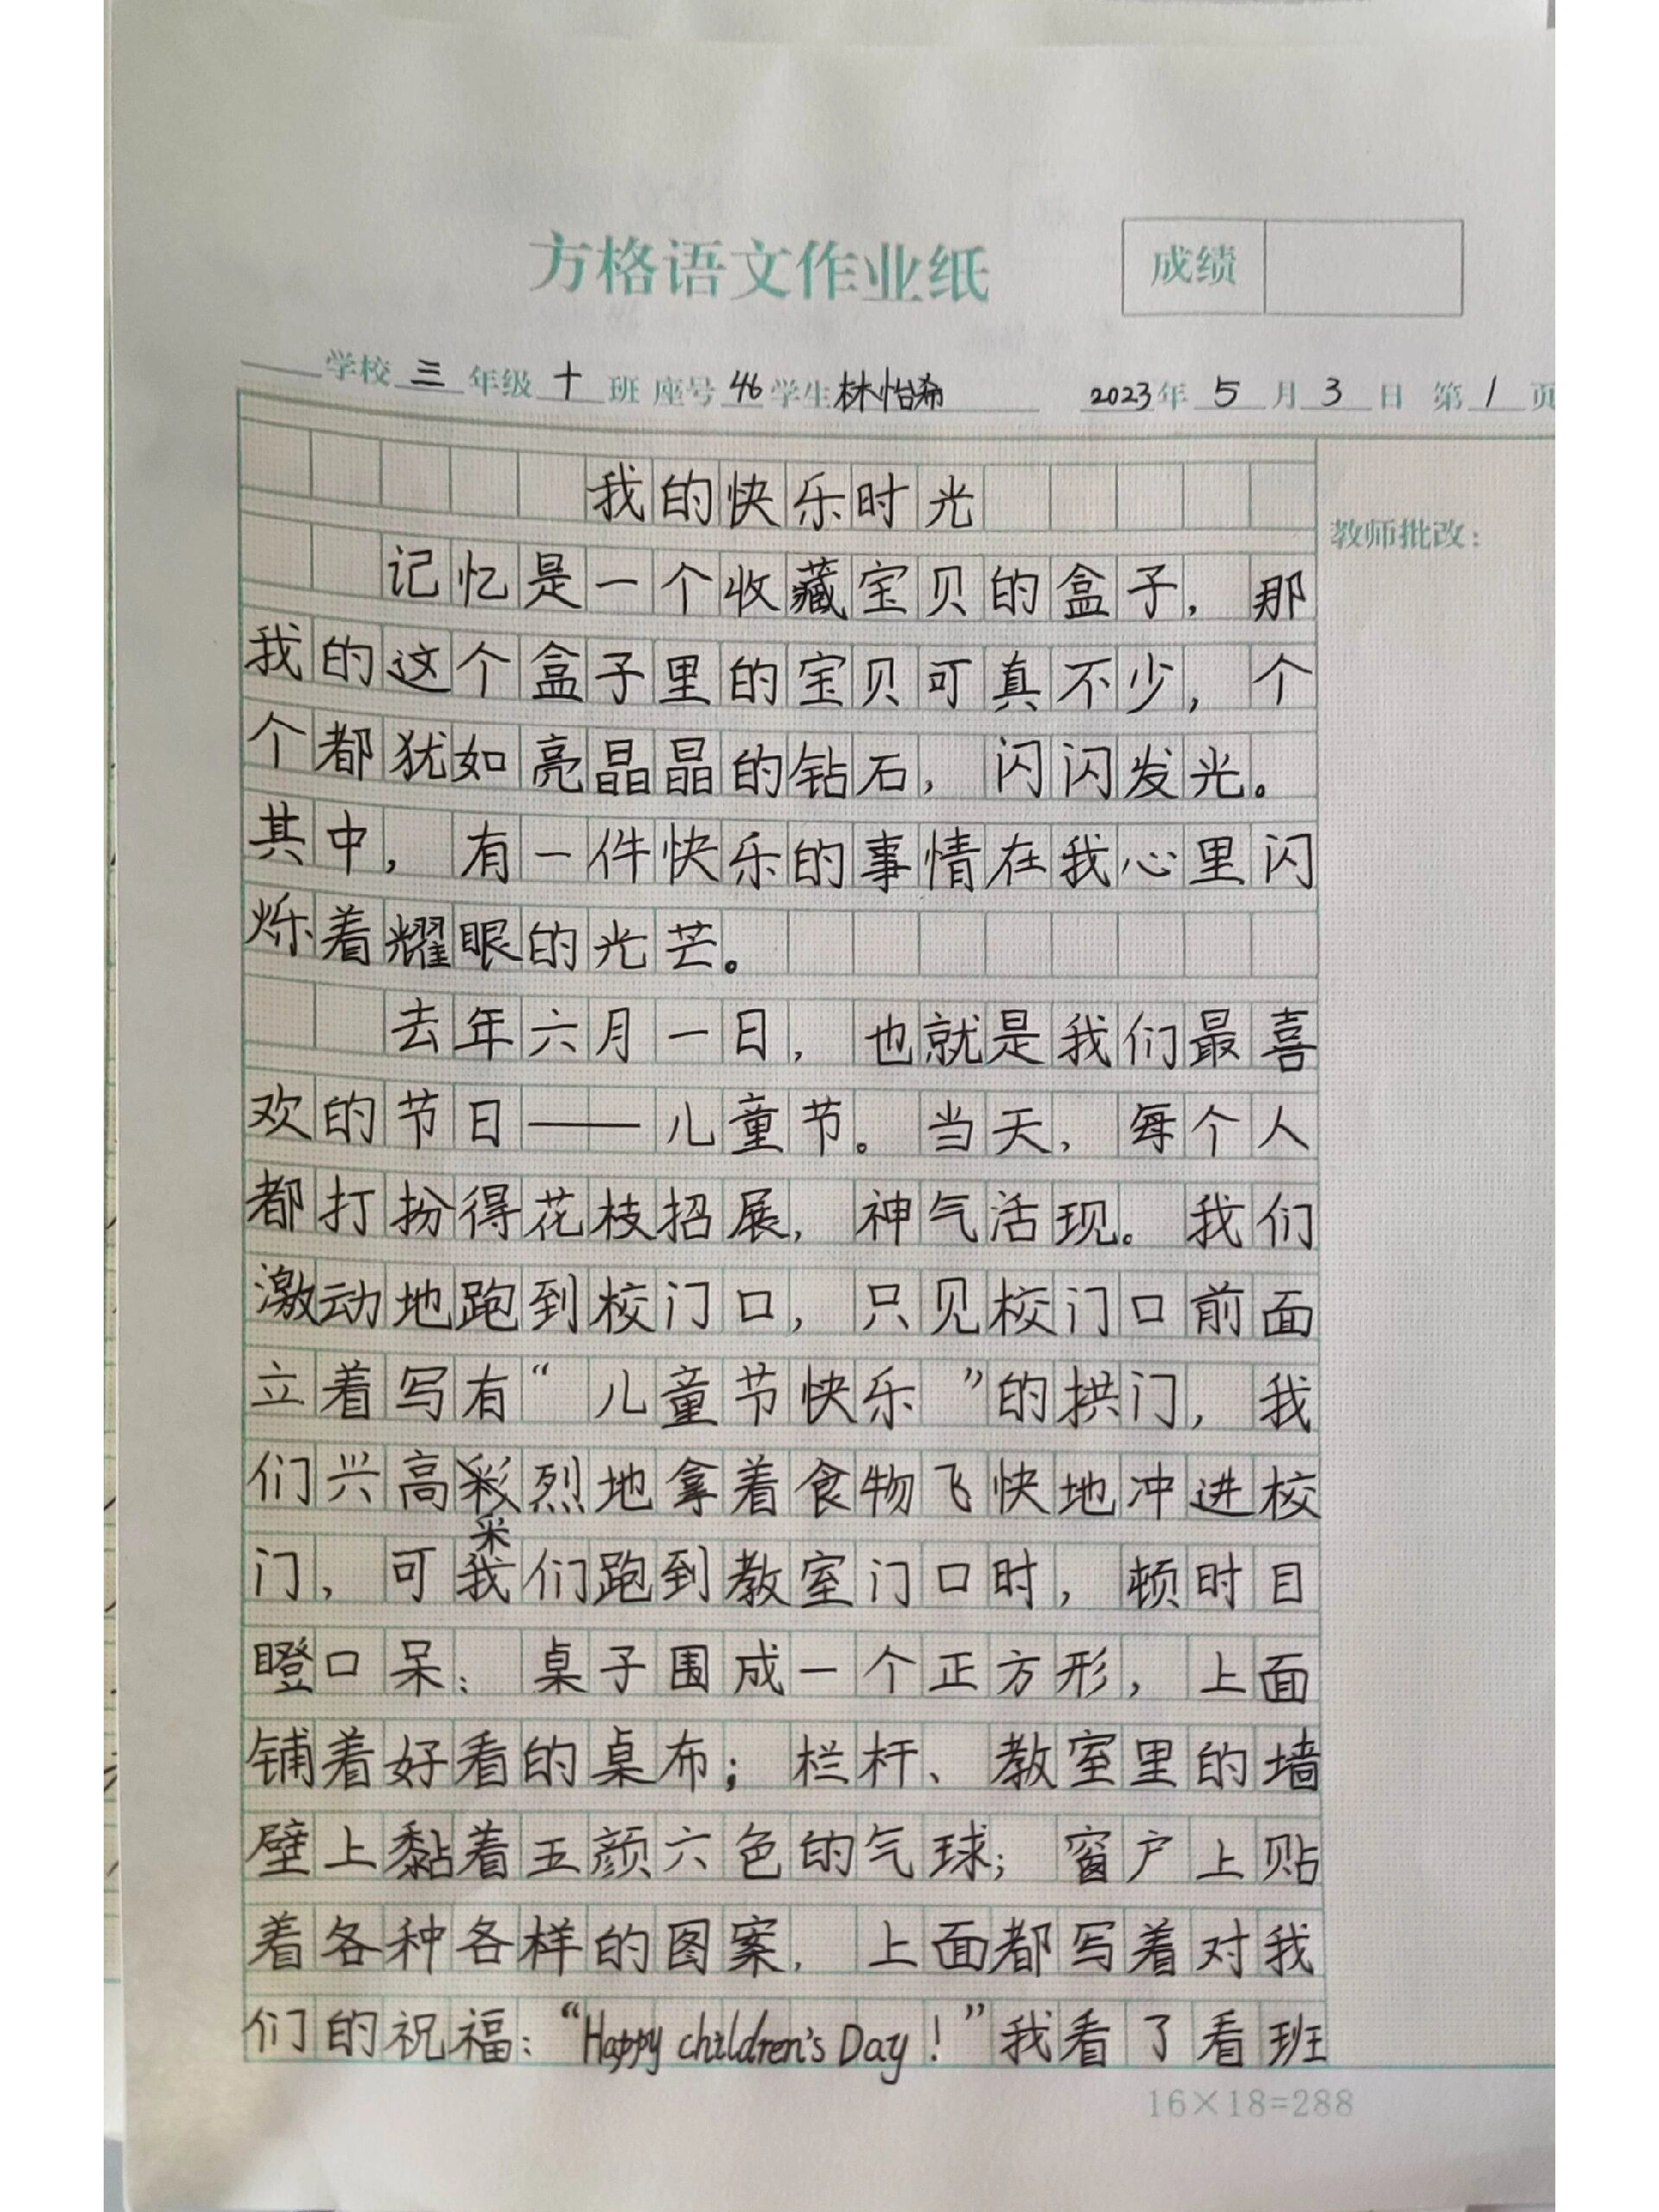 方格语文作业纸
成绩
学校 三 年级 十 班 座号 46 学生 林怡希 2023年 5 月 3 日 第 1 页
我的快乐时光
教师批改:
记忆是一个收藏宝贝的盒子，那
我的这个盒子里的宝贝可真不少，个
个都犹如亮晶晶的钻石，闪闪发光。
其中，有一件快乐的事情在我心里闪
烁着耀眼的光芒。
去年六月一日，也就是我们最喜
欢的节日——儿童节。当天，每个人
都打扮得花枝招展，神气活现。我们
激动地跑到校门口，只见校门口前面
立着写有“儿童节快乐”的拱门，我
们兴高彩烈地拿着食物飞快地冲进校
采
门，可我们跑到教室门口时，顿时目
瞪口呆：桌子围成一个正方形，上面
铺着好看的桌布；栏杆、教室里的墙
壁上黏着五颜六色的气球；窗户上贴
着各种各样的图案，上面都写着对我
们的祝福：“Happy children's Day！”我看了看班
16×18=288